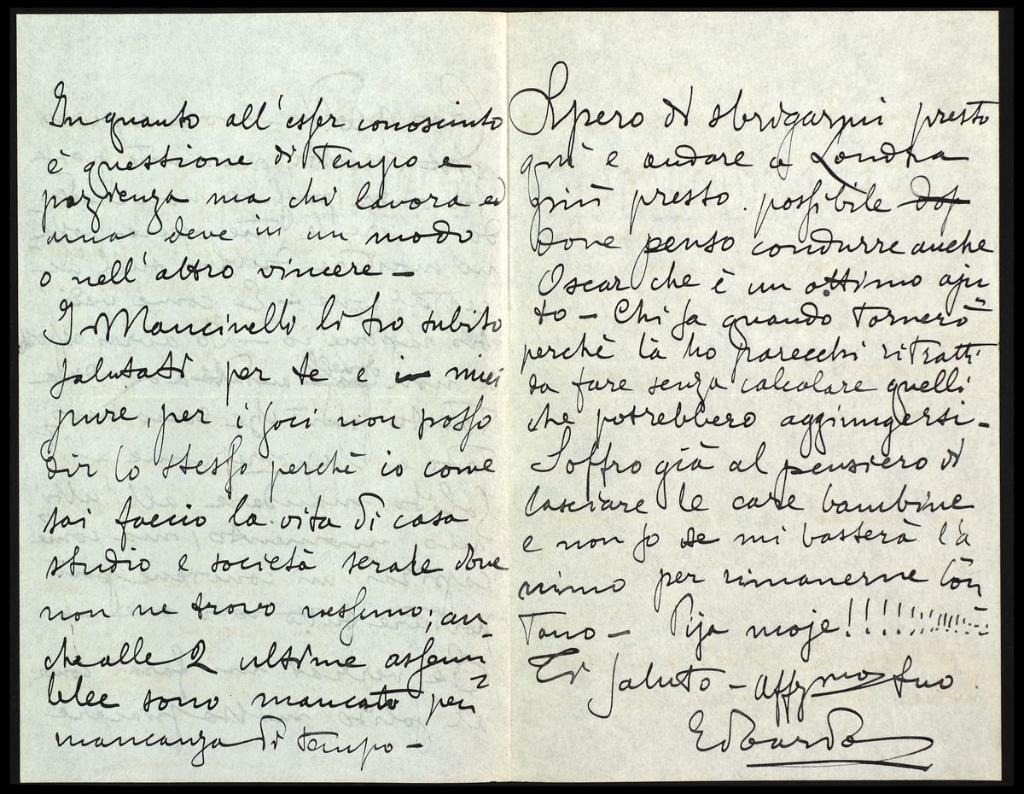 In quanto all'esser conosciuto
è questione di tempo e
pazienza ma chi lavora ed
ama deve in un modo
o nell'altro vincere –
I Mancinelli li ho subito
salutati per te e miei
pure, per i soci non posso
dir lo stesso perchè io come
sai faccio la vita di casa
studio e società serale dove
non ne trovo nessuno; an
che alle 2 ultime assem
blee sono mancato per
mancanza di tempo –
Spero di sbrigarmi presto
qui e andare a Londra
più presto possibile
dove penso condurre anche
Oscar che è un ottimo aju
to – Chi sa quando tornerò
perchè là ho parecchi ritratti
da fare senza calcolare quelli
che potrebbero aggiungersi –
Soffro già al pensiero di
lasciare le care bambine
e non so se mi basterà l'a
nimo per rimanerne lon
tano – Pija moje!!!!!!!!!!!!
Ti saluto – affezmo tuo
Edoardo